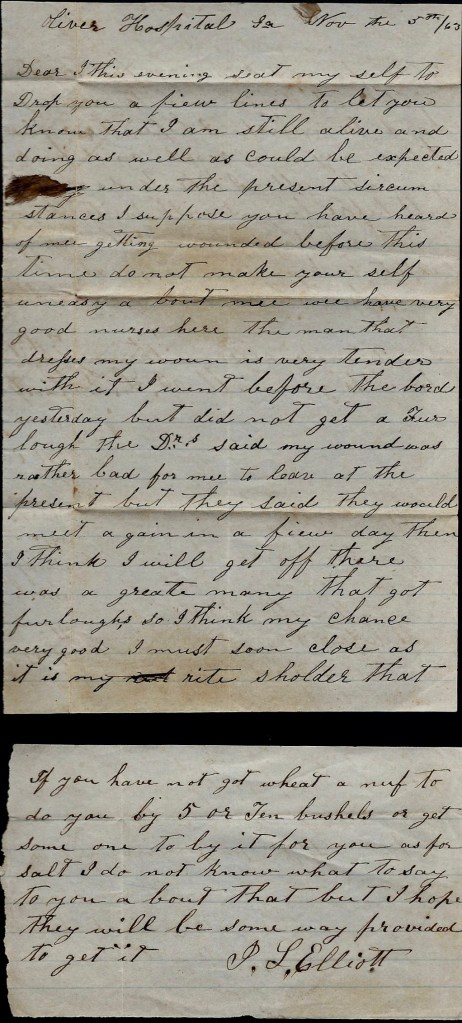 Oliver Hospital Ga Nov the 5th/63
Dear I this evening seat my self to
Drop you a fiew lines to let you
know that I am still alive and
doing as well as could be expected
under the present sircum
stances I suppose you have heard
of mee getting wounded before this
time do not make your self
uneasy a bout mee wee have very
good nurses here the man that
dresses my woun is very tender
with it I went before the bord
yesterday but did not get a Fur
lough the Drs said my wound was
rather bad for mee to leave at the
present but they said they would
meet a gain in a fiew day then
I think I will get off there
was a greate many that got
furloughs so I think my chance
very good I must soon close as
it is my rite sholder that
If you have not got wheat a nuf to
do you by 5 or Ten bushels or get
some one to by it for you as for
salt I do not know what to say
to you a bout that but I hope
they will be some way provided
to get it J. L. Elliott